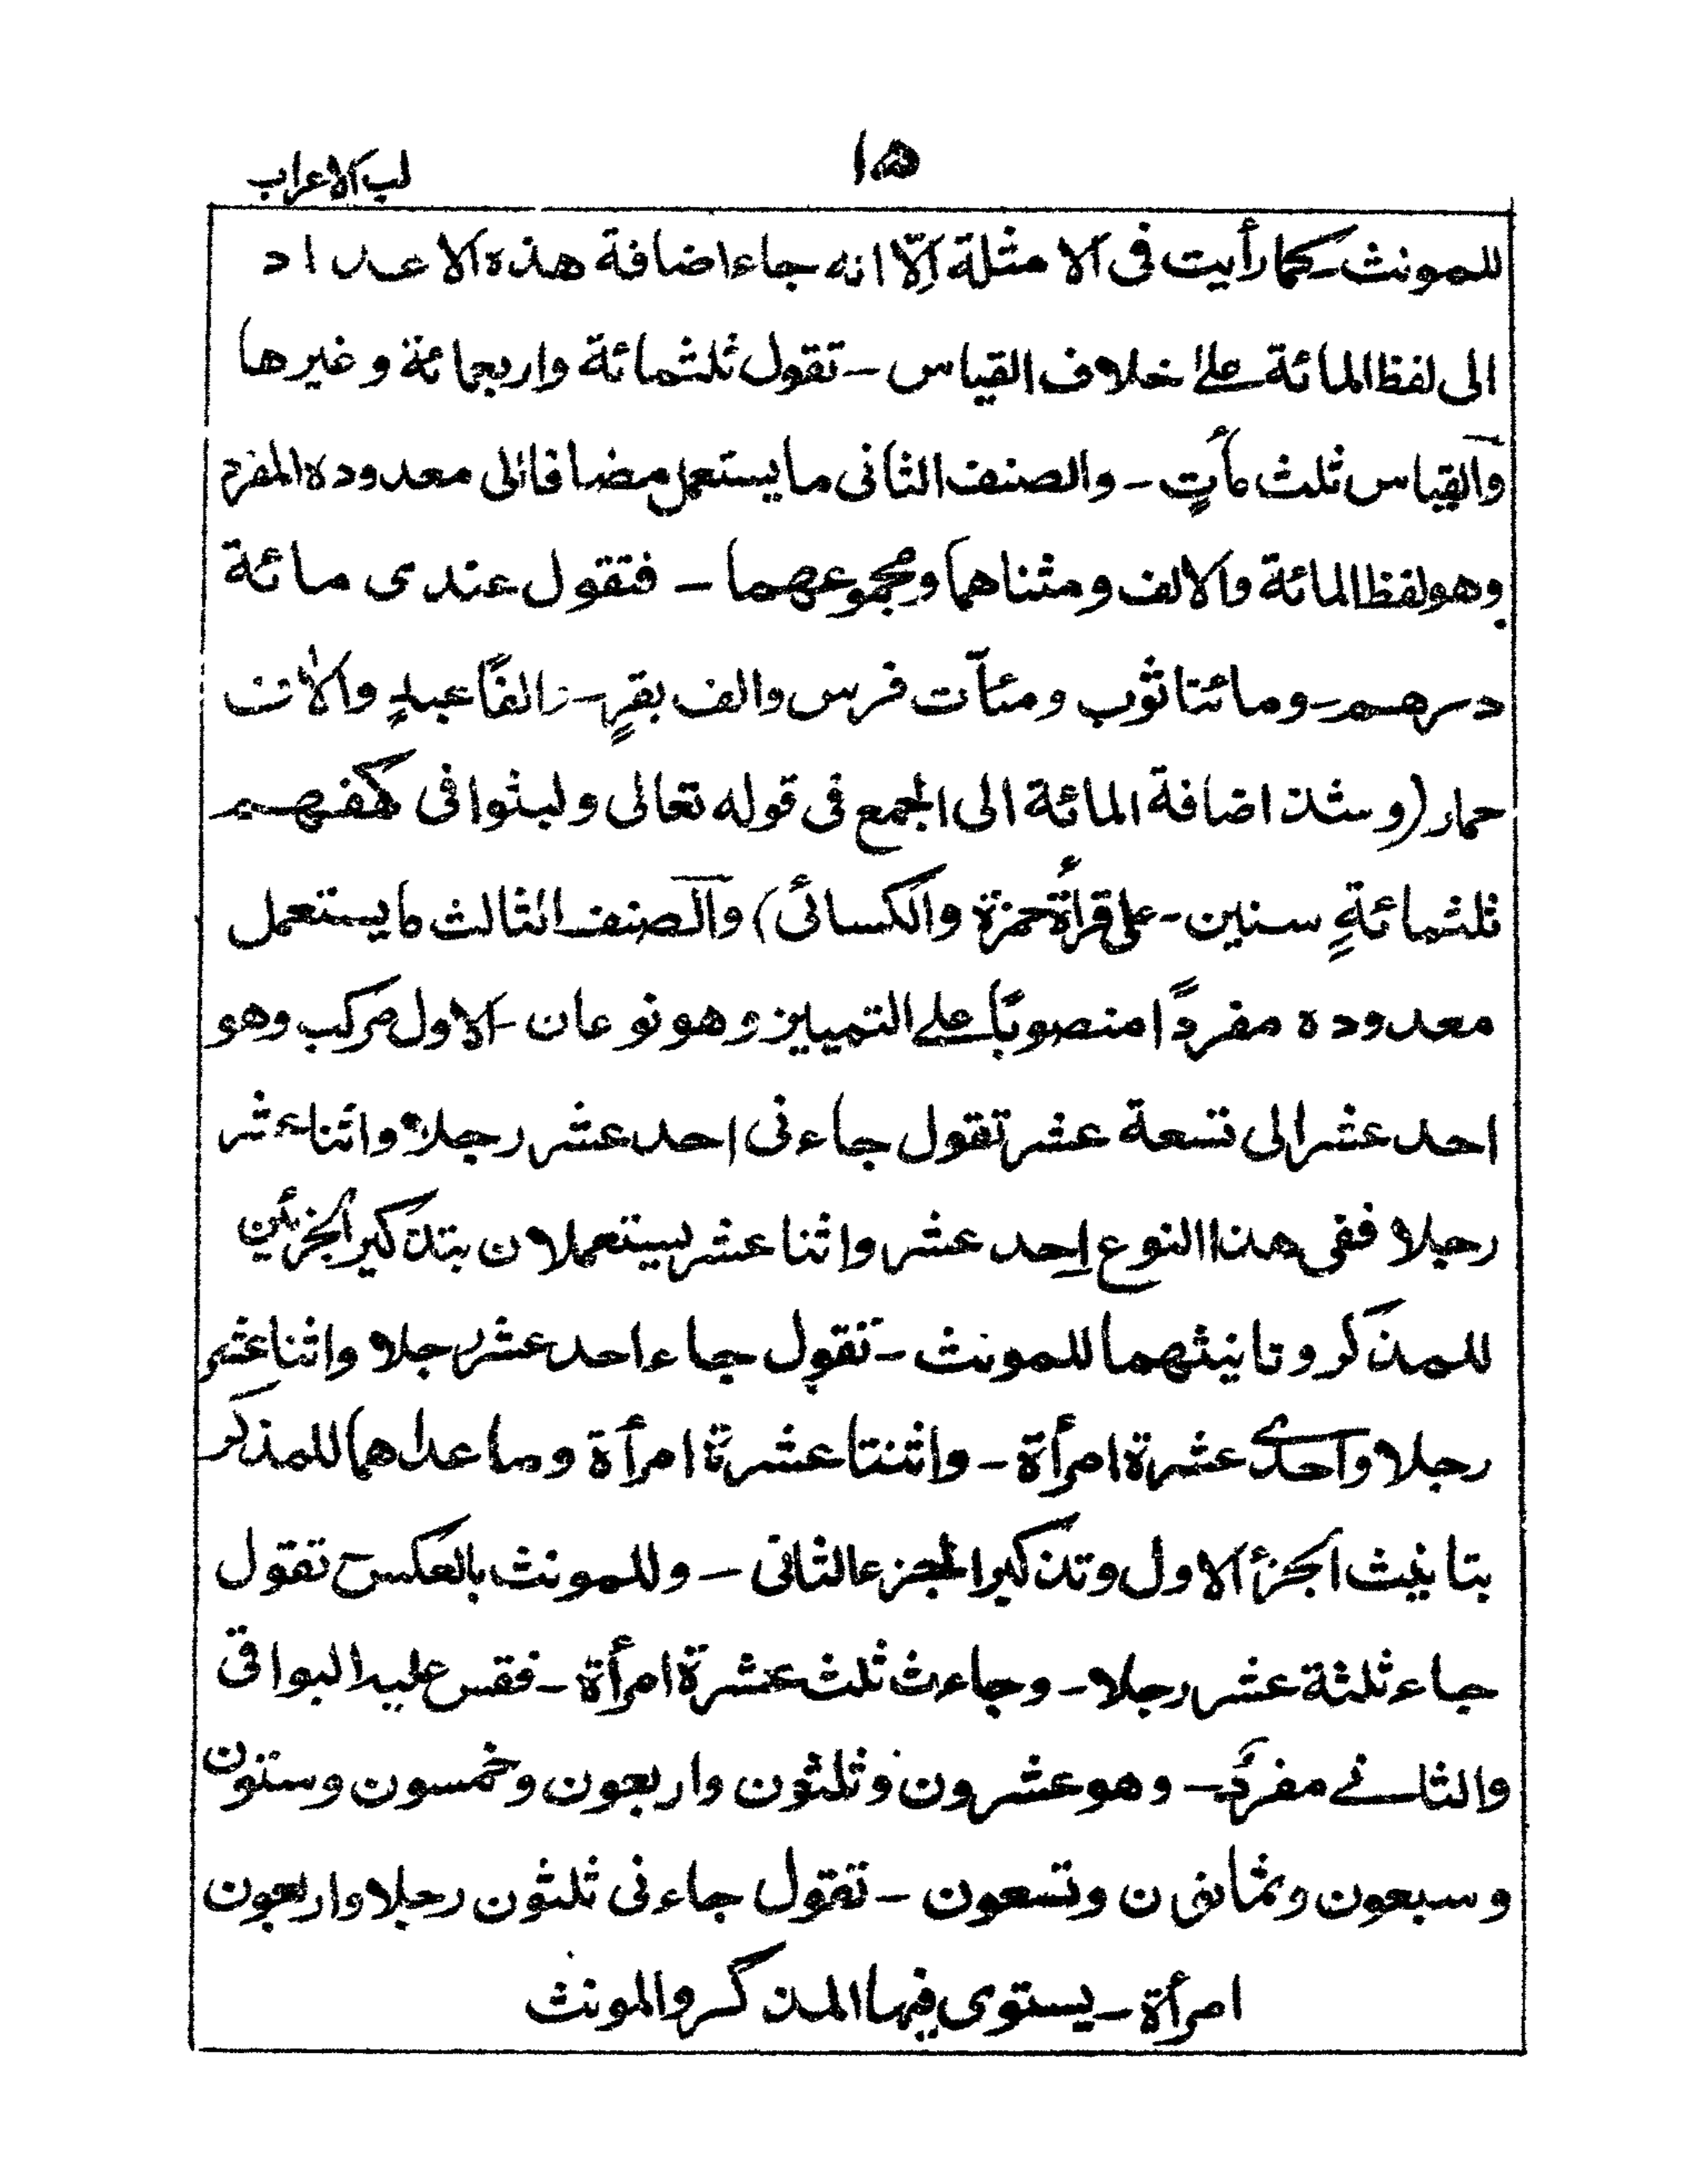 ١٥
لب الاعراب
للمونث ـ كما رأيت فى الامثلة اِلّا انه جاء اضافة هذه الاعداد
الى لفظ المائة على خلاف القياس ـ تقول ثلثمائة واربعمائة وغيرها
والقياس ثلث مأتٍ ـ والصنف الثانى ما يستعمل مضافا الى معدوده المفرد
وهو لفظ المائة والالف ومثناهما ومجموعهما ـ فتقول عندى مائة
درهم ـ ومائتا ثوب ومئآت فرس والف بقرٍ ـ والفًا عبدٍ والاف
حمار (وشذ اضافة المائة الى الجمع فى قوله تعالى ولبثوا فى كهفهم
ثلثمائةٍ سنين ـ على قرأة حمزة والكسائى) والصنف الثالث ما يستعمل
معدوده مفردًا منصوبًا على التمييز وهو نوعان ـ الاول مركب وهو
احد عشر الى تسعة عشر تقول جاءنى احد عشر رجلا واثنا عشر
رجلا ففى هذا النوع احد عشر واثنا عشر يستعملان بتذكير الجزئين
للمذكر وتانيثهما للمونث ـ تقول جاء احد عشر رجلا واثنا عشر
رجلا واحدى عشرة امرأة ـ واثنتا عشرة امرأة وما عداهما للمذكر
بتانيث الجزأ الاول وتذكير الجزء الثانى ـ وللمونث بالعكس تقول
جاء ثلثة عشر رجلا ـ وجاءت ثلث عشرة امرأة ـ فقس عليه البواقى
والثانى مفرد ـ وهو عشرون وثلثون واربعون وخمسون وستون
وسبعون وثمانون وتسعون ـ تقول جاءنى ثلثون رجلا واربعون
امرأة ـ يستوى فيها المذكر والمونث